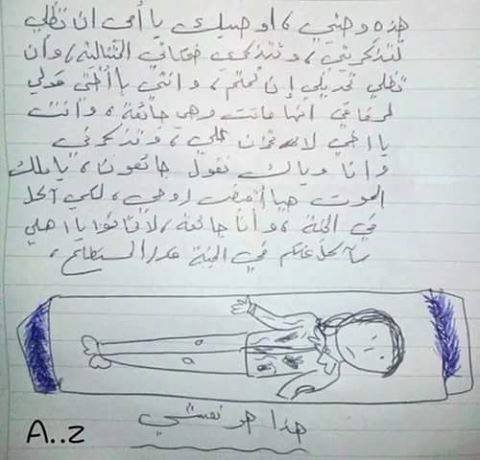 هذه وصيتي، اوصيك يا أمي ان تظلي
تتذكريني، وتتذكري ضحكاتي المتتالية، وأن
تظلي إن نمتم، وانتي يا أختي قولي
لرفاقي انها ماتت وهي جائعة، وأنت
يا اخي لا تحزن علي، وتذكرني
وانا وياك نقول جائعون، يا ملك
الموت هيا اقبض روحي، لكي آكل
في الجنة، وأنا جائعة، لا تخافوا يا اهلي
سآكل عنكم في الجنة قدر المستطاع،
هذا هو نعشي
A..Z